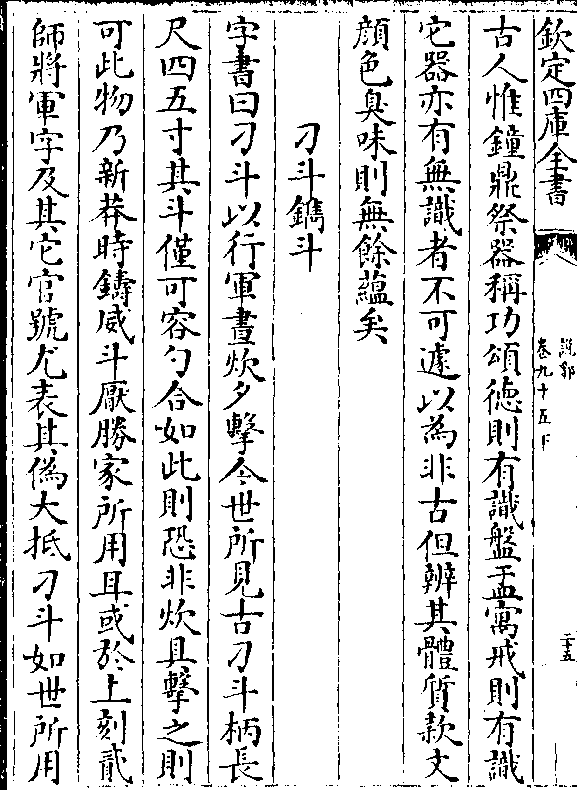 欽定四庫全書
說郛
卷九十五下
二十五
古人惟鐘鼎祭器稱功頌徳則有識盤盂寓戒則有識
它器亦有無識者不可遽以為非古但辨其體質款文
顔色臭味則無餘蘊矣
刁斗鐎斗
字書曰刁斗以行軍晝炊夕擊今世所見古刁斗柄長
尺四五寸其斗僅可容勺合如此則恐非炊具擊之則
可此物乃新莽時鑄威斗厭勝家所用耳或於上刻貳
師將軍字及其它官號尤表其偽大抵刁斗如世所用